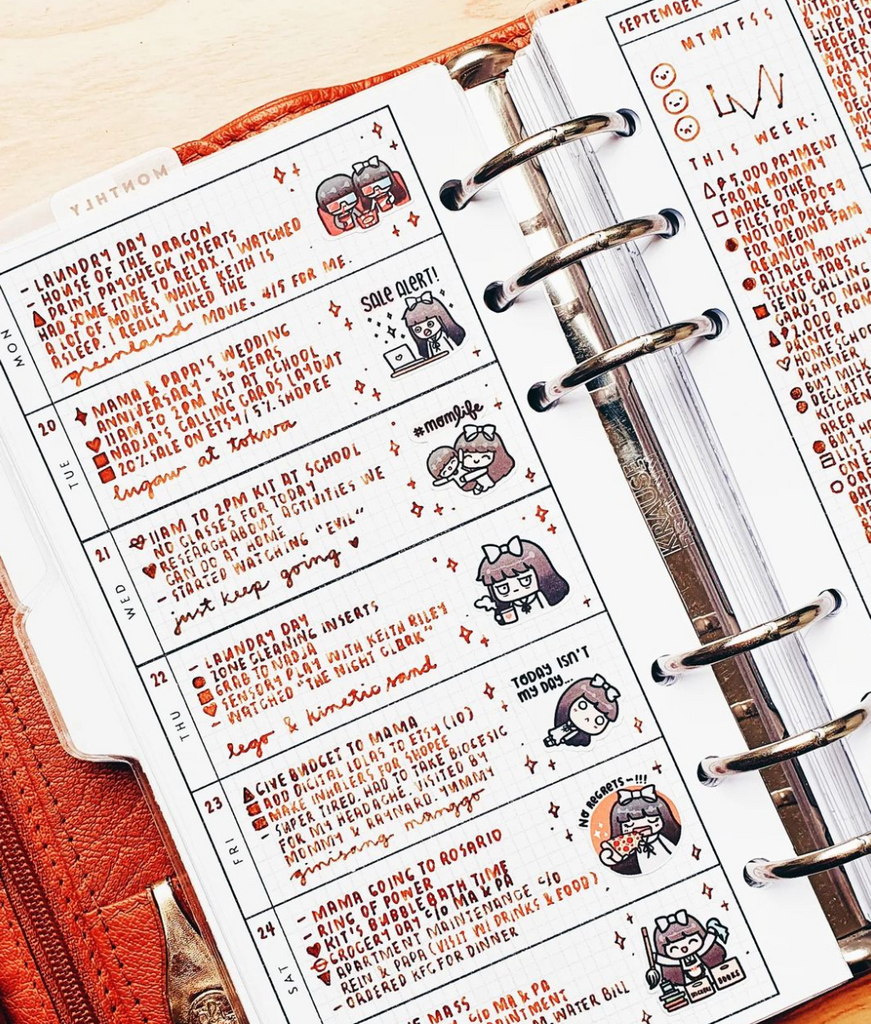 MONTHLY
MON
- LAUNDRY DAY
- HOUSE OF THE DRAGON
PRINT PAYCHECK INSERTS
HAD SOME TIME TO RELAX. I WATCHED
A LOT OF MOVIES WHILE KEITH IS
ASLEEP. I REALLY LIKED THE
greenland MOVIE. 4/5 FOR ME.
20
TUE
MAMA & PAPA'S WEDDING
ANNIVERSARY - 36 YEARS
11AM TO 2PM KIT AT SCHOOL
NADJA'S CALLING CARDS LAYOUT
20% SALE ON ETSY/5% SHOPEE
lugaw at tokwa
SALE ALERT!
21
WED
11AM TO 2PM KIT AT SCHOOL
NO GLASSES FOR TODAY
RESEARCH ABOUT ACTIVITIES WE
CAN DO AT HOME
- STARTED WATCHING "EVIL"
just keep going
#momlife
22
THU
- LAUNDRY DAY
ZONE CLEANING INSERTS
GRAB TO NADJA
SENSORY PLAY WITH KEITH RILEY
- WATCHED "THE NIGHT CLERK"
lego & kinetic sand
23
FRI
GIVE BUDGET TO MAMA
ADD DIGITAL LOLAS TO ETSY (10)
MAKE INHALERS FOR SHOPEE
- SUPER TIRED. HAD TO TAKE BIOGESIC
FOR MY HEADACHE. VISITED BY
MOMMY & RAYNARD. YUMMY
ginisang manggo
TODAY ISN'T
MY DAY...
24
SAT
- MAMA GOING TO ROSARIO
- RING OF POWER
KIT'S BUBBLE BATH TIME
GROCERY DAY C/O MA & PA
APARTMENT MAINTENANCE C/O
REIN & PAPA (VISIT W/ DRINKS & FOOD)
- ORDERED KFC FOR DINNER
NO REGRETS-!!!
MASS
C/O MA & PA
WATER BILL
BOOKS
KRAUSE
SEPTEMBER
M T W T F S S
THIS WEEK:
₱5,000 PAYMENT
FROM MOMMY
MAKE OTHER
FILES FOR PP054
NOTION PAGE
FOR MEDINA FAM
REUNION
ATTACH MONTHLY
STICKER TABS
SEND CALLING
CARDS TO
FROM
PRINTER
HOMESCHOOL
PLANNER
BUY MILK
KITCHEN
AREA
LISTEN TO
TEACH
WATER